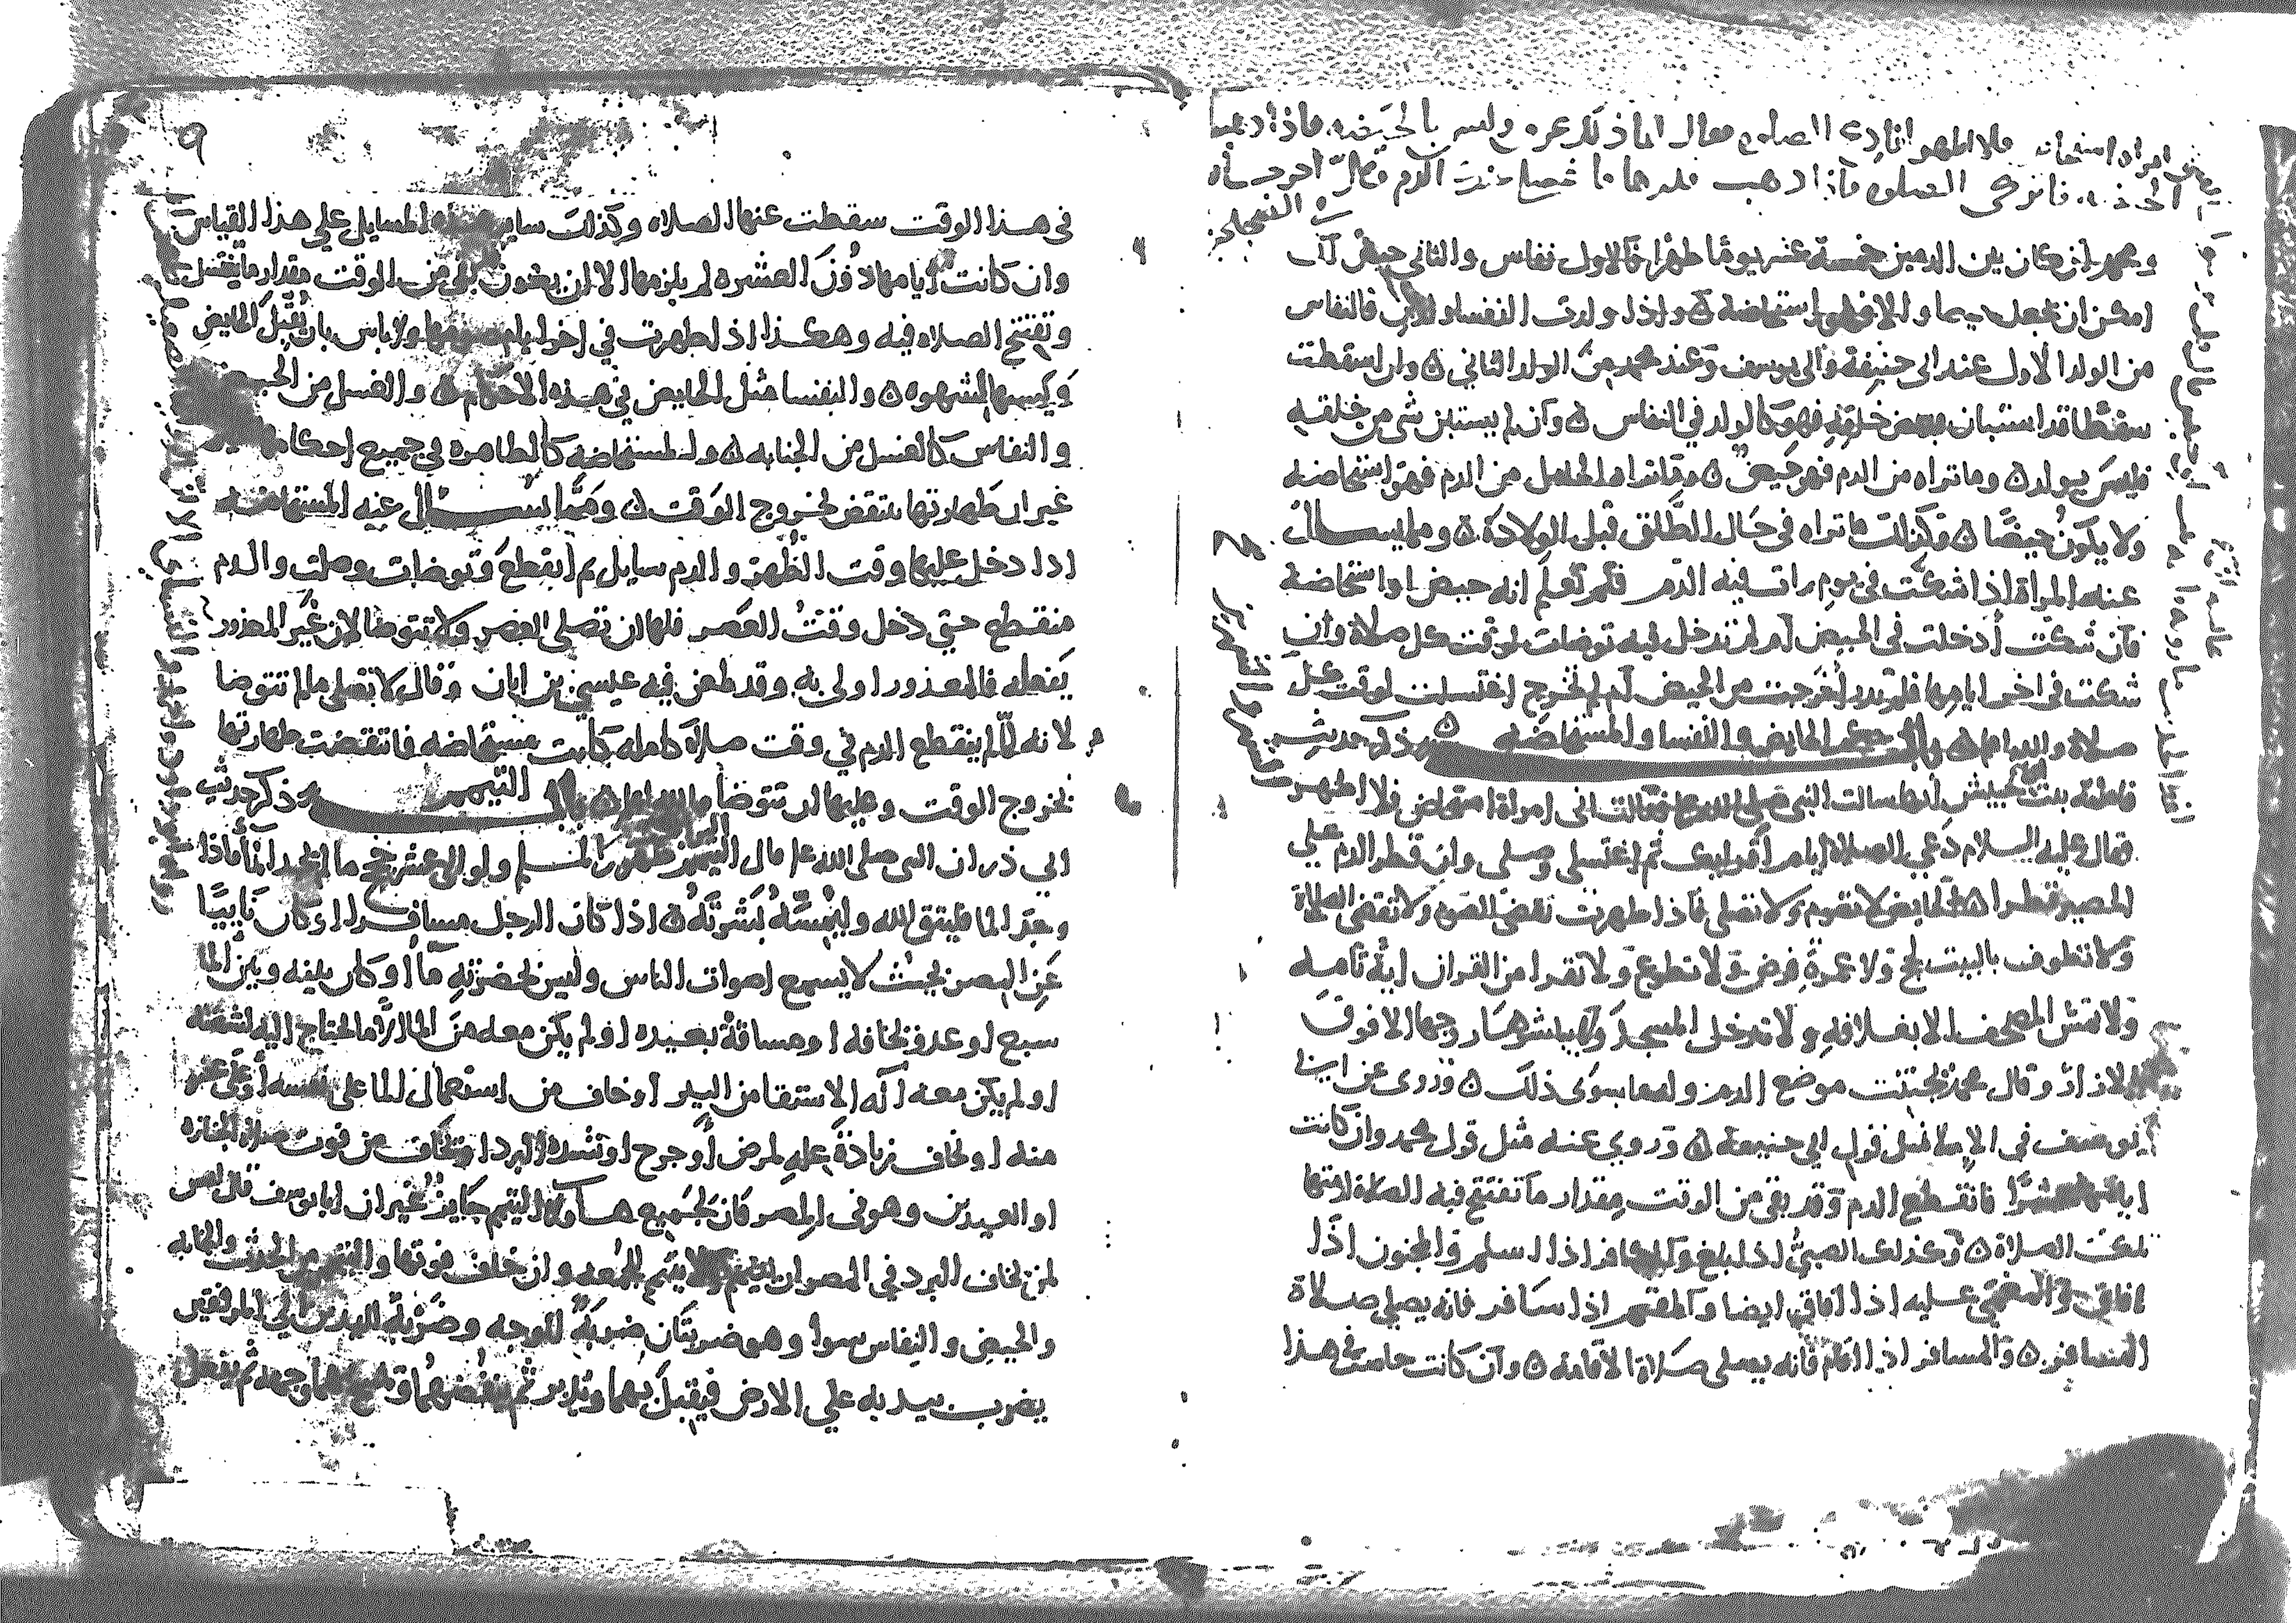 فلا اطهر افادع الصلاه فقال انما ذلك عرق وليس بالحيضه فاذا
الصلوه فاذا ذهب قدرها فاغسلي عنك الدم
ومحمد ان كان بين الدمين خمسة عشر يوما طهرا فالاول نفاس والثاني حيض ان
امكن ان يجعل حيضا والا فهو استحاضة ٥ واذا ولدت النفسا ولدين فالنفاس
من الولد الاول عند ابى حنيفة وابى يوسف وعند محمد من الولد الثاني ٥ وان اسقطت
سقطا قد استبان بعض خلقه فهو كالولد في النفاس ٥ وان لم يستبن شي من خلقه
فليس بولد ٥ وما تراه من الدم فهو حيض ٥ وما تراه الحامل من الدم فهو استحاضه
ولا يكون حيضا ٥ وكذلك ما تراه في حال الطلق قبل الولادة ٥ ومما يسال
عنه المراة اذا شكت في يوم رات فيه الدم فلم تعلم انه حيض او استحاضة
فان شكت أدخلت في الحيض ام لم تدخل فيه توضات لوقت كل صلاة وان
شكت في اخر ايامها فلم تدر أخرجت من الحيض ام لم تخرج اغتسلت لوقت كل
صلاة والله اعلم ٥ باب حكم الحايض والنفسا والمستحاضه ٥ ذكر حديث
فاطمة بنت حبيش انها سالت النبي صلى الله عليه فقالت انى امراة استحاض فلا اطهر
فقال عليه السلام دعي الصلاة ايام اقرايك ثم اغتسلي وصلى وان قطر الدم على
الحصير قطرا ٥ الحايض لا تصوم ولا تصلى فاذا طهرت تقضى الصوم ولا تقضى الصلاة
ولا تطوف بالبيت لحج ولا عمرة فرض ولا تطوع ولا تقرا من القران اية تامه
ولا تمس المصحف الا بغلافه ولا تدخل المسجد ولا يباشرها زوجها الا فوق
الازار وقال محمد يجتنب موضع الدم وله ما سوى ذلك ٥ وروى عن ابى
يوسف في الاملا مثل قول ابي حنيفة ٥ وروي عنه مثل قول محمد وان كانت
ايامها عشرا فانقطع الدم وقد بقى من الوقت مقدار ما تفتتح فيه الصلاة لزمتها
تلك الصلاة ٥ وكذلك الصبي اذا بلغ والكافر اذا اسلم والمجنون اذا
افاق والمغمى عليه اذا افاق ايضا والمقيم اذا سافر فانه يصلي صلاة
المسافر ٥ والمسافر اذا اقام فانه يصلى صلاة الاقامة ٥ وان كانت حاضت في هذا
٩
في هذا الوقت سقطت عنها الصلاه وكذلك ساير هذه المسايل علي هذا القياس
وان كانت ايامها دون العشره لم يلزمها الا ان يكون بقى من الوقت مقدار ما يغتسل
وتفتتح الصلاه فيه وهكذا اذا طهرت في اخر ايام صومها ولا باس بان يقبل الحايض
ويمسها لشهوه ٥ والنفسا مثل الحايض في هذه الاحكام ٥ والغسل من الحيض
والنفاس كالغسل من الجنابه ٥ والمستحاضه كالطاهره في جميع احكامها
غير ان طهارتها تنتقض لخروج الوقت ٥ ومما يسال عنه المستحاضه
اذا دخل عليها وقت الظهر والدم سايل ثم انقطع وتوضات وصلت والدم
منقطع حتي دخل وقت العصر فلها ان تصلى العصر ولا تتوضا لان غير المعذور
يفعله فالمعذور اولى به وقد طعن فيه عيسى بن ابان وقال لا تصلى ما لم تتوضا
لانه لما لم ينقطع الدم في وقت صلاة كامله كانت مستحاضه فانتقضت طهارتها
بخروج الوقت وعليها ان تتوضا والله اعلم ٥ باب التيمم ذكر حديث
ابي ذر ان النبي صلى الله عليه قال التيمم طهور المسلم ولو الى عشر حجج ما لم يجد الما فاذا
وجد الما فليتق الله وليمسه بشرته ٥ اذا كان الرجل مسافرا او كان ناييا
عن المصر بحيث لا يسمع اصوات الناس وليس بحضرته ما او كان بينه وبين الما
سبع او عدو يخافه او مسافة بعيده او لم يكن معه من الما الا ما يحتاج اليه لشفته
او لم يكن معه آله الاستقا من البير او خاف من استعمال الما على نفسه او على عضو
منه او يخاف زيادة عله لمرض او جرح او لشدة البرد او يخاف من فوت صلاة الجنازه
او العيدين وهو في المصر فان لجميع هاولا التيمم جايز غير ان ابا يوسف قال ليس
لمن يخاف البرد في المصر ان يتيمم ولا يتيمم للجمعه وان خاف فوتها والتيمم من الحدث والجنابه
والحيض والنفاس سوا وهو ضربتان ضربة للوجه وضربة لليدين الي المرفقين
يضرب بيديه علي الارض فيقبل بهما ويدبر ثم ينفضهما ويمسح بهما وجهه ثم يفعل